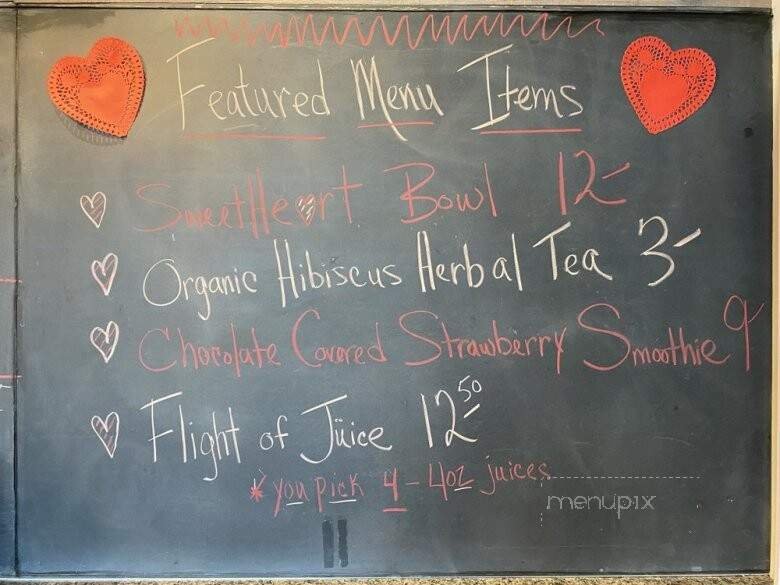 Featured Menu Items
SweetHeart Bowl 12-
Organic Hibiscus Herbal Tea 3-
Chocolate Covared Strawberry Smoothie 9
Flight of Jüice 12 50
*you pick 4 - 4oz juices
menupix